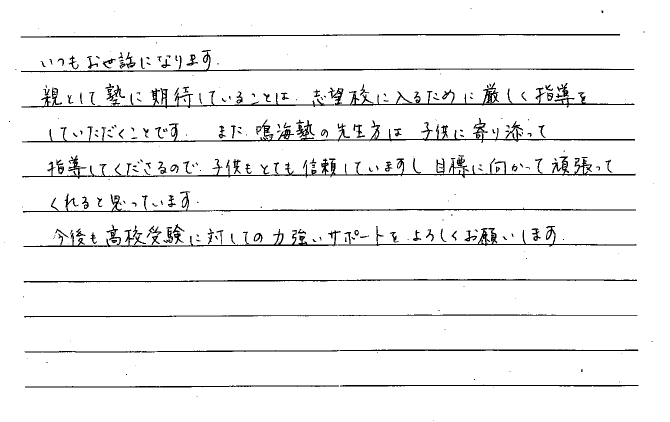 いつもお世話になります.
親として塾に期待していることは、志望校に入るために厳しく指導を
していただくことです. また、鳴海塾の先生方は、子供に寄り添って
指導してくださるので、子供もとても信頼していますし、目標に向かって頑張って
くれると思っています.
今後も高校受験に対しての力強いサポートを、よろしくお願いします.